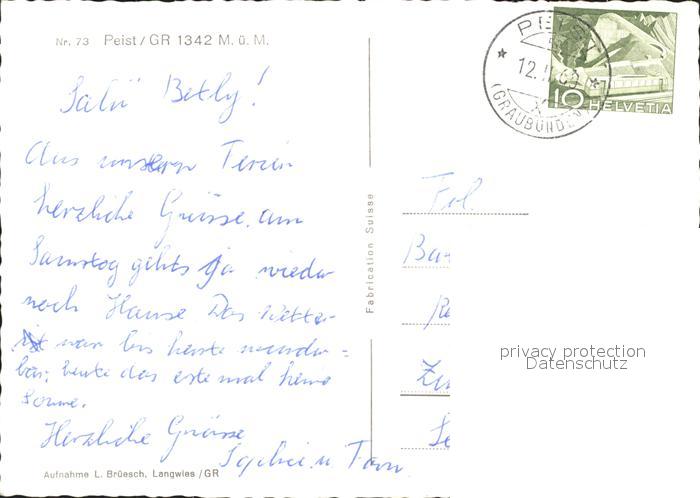 Nr. 73 Peist/GR 1342 M. ü. M.
PEIST
12. 60
(GRAUBÜNDEN)
10 HELVETIA
Salü Betly!
Aus unsern Ferien
herzliche Grüsse. am
Samstag gehts ja wieder
nach Hause Das Wetter
ist war bis heute wunder-
bar; heute das erste mal keine
Sonne.
Herzliche Grüsse
Sophie u
Fabrication Suisse
Frl.
privacy protection
Datenschutz
Aufnahme L. Brüesch, Langwies/GR